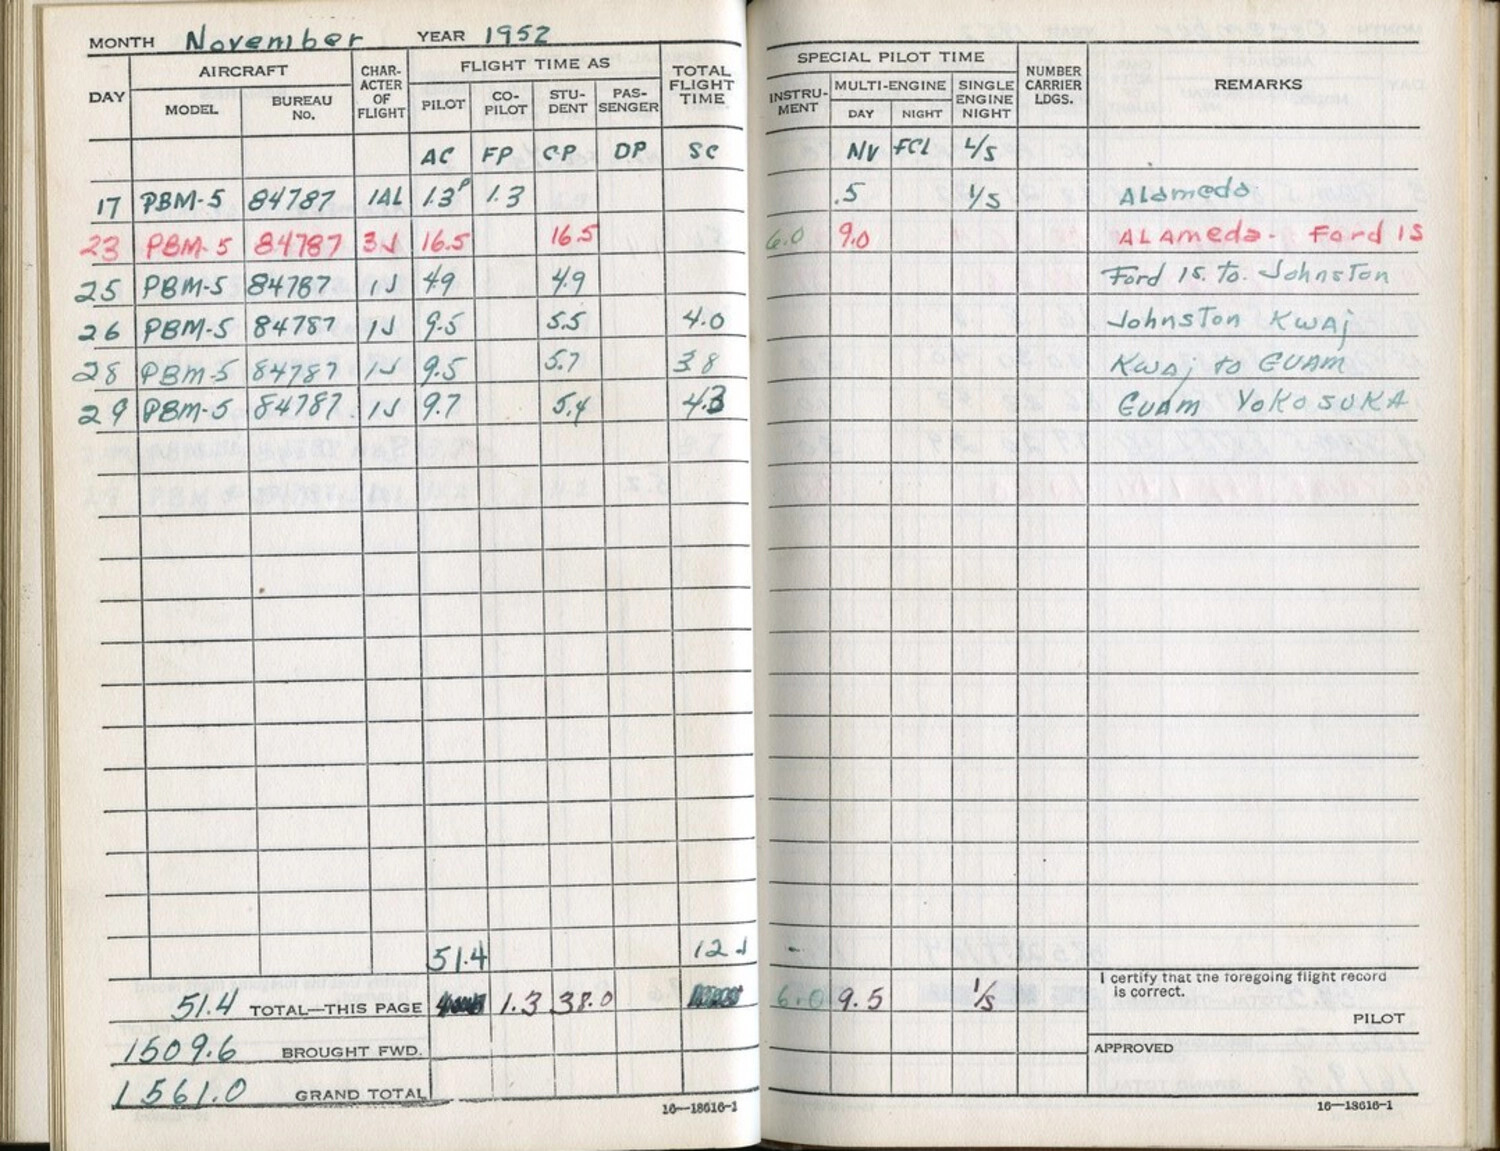 MONTH November YEAR 1952
DAY AIRCRAFT CHAR-ACTER OF FLIGHT FLIGHT TIME AS TOTAL FLIGHT TIME SPECIAL PILOT TIME NUMBER CARRIER LDGS. REMARKS
MODEL BUREAU No. PILOT CO-PILOT STU-DENT PAS-SENGER INSTRU-MENT MULTI-ENGINE SINGLE ENGINE NIGHT
DAY NIGHT
AC FP CP DP SC NV FCL L/S
17 PBM-5 84787 1AL 1.3P 1.3 .5 1/S Alameda
23 PBM-5 84787 3J 16.5 16.5 6.0 9.0 ALAmeda- Ford IS
25 PBM-5 84787 1J 4.9 4.9 Ford IS. to. Johnston
26 PBM-5 84787 1J 9.5 5.5 4.0 Johnston Kwaj
28 PBM-5 84787 1J 9.5 5.7 3.8 Kwaj to GUAM
29 PBM-5 84787 1J 9.7 5.4 4.3 Guam YoKoSUKA
51.4 12.1 -
51.4 TOTAL—THIS PAGE 1.3 38.0 6.0 9.5 1/S
I certify that the foregoing flight record is correct.
PILOT
1509.6 BROUGHT FWD. APPROVED
1561.0 GRAND TOTAL
16—18616-1 16—18616-1